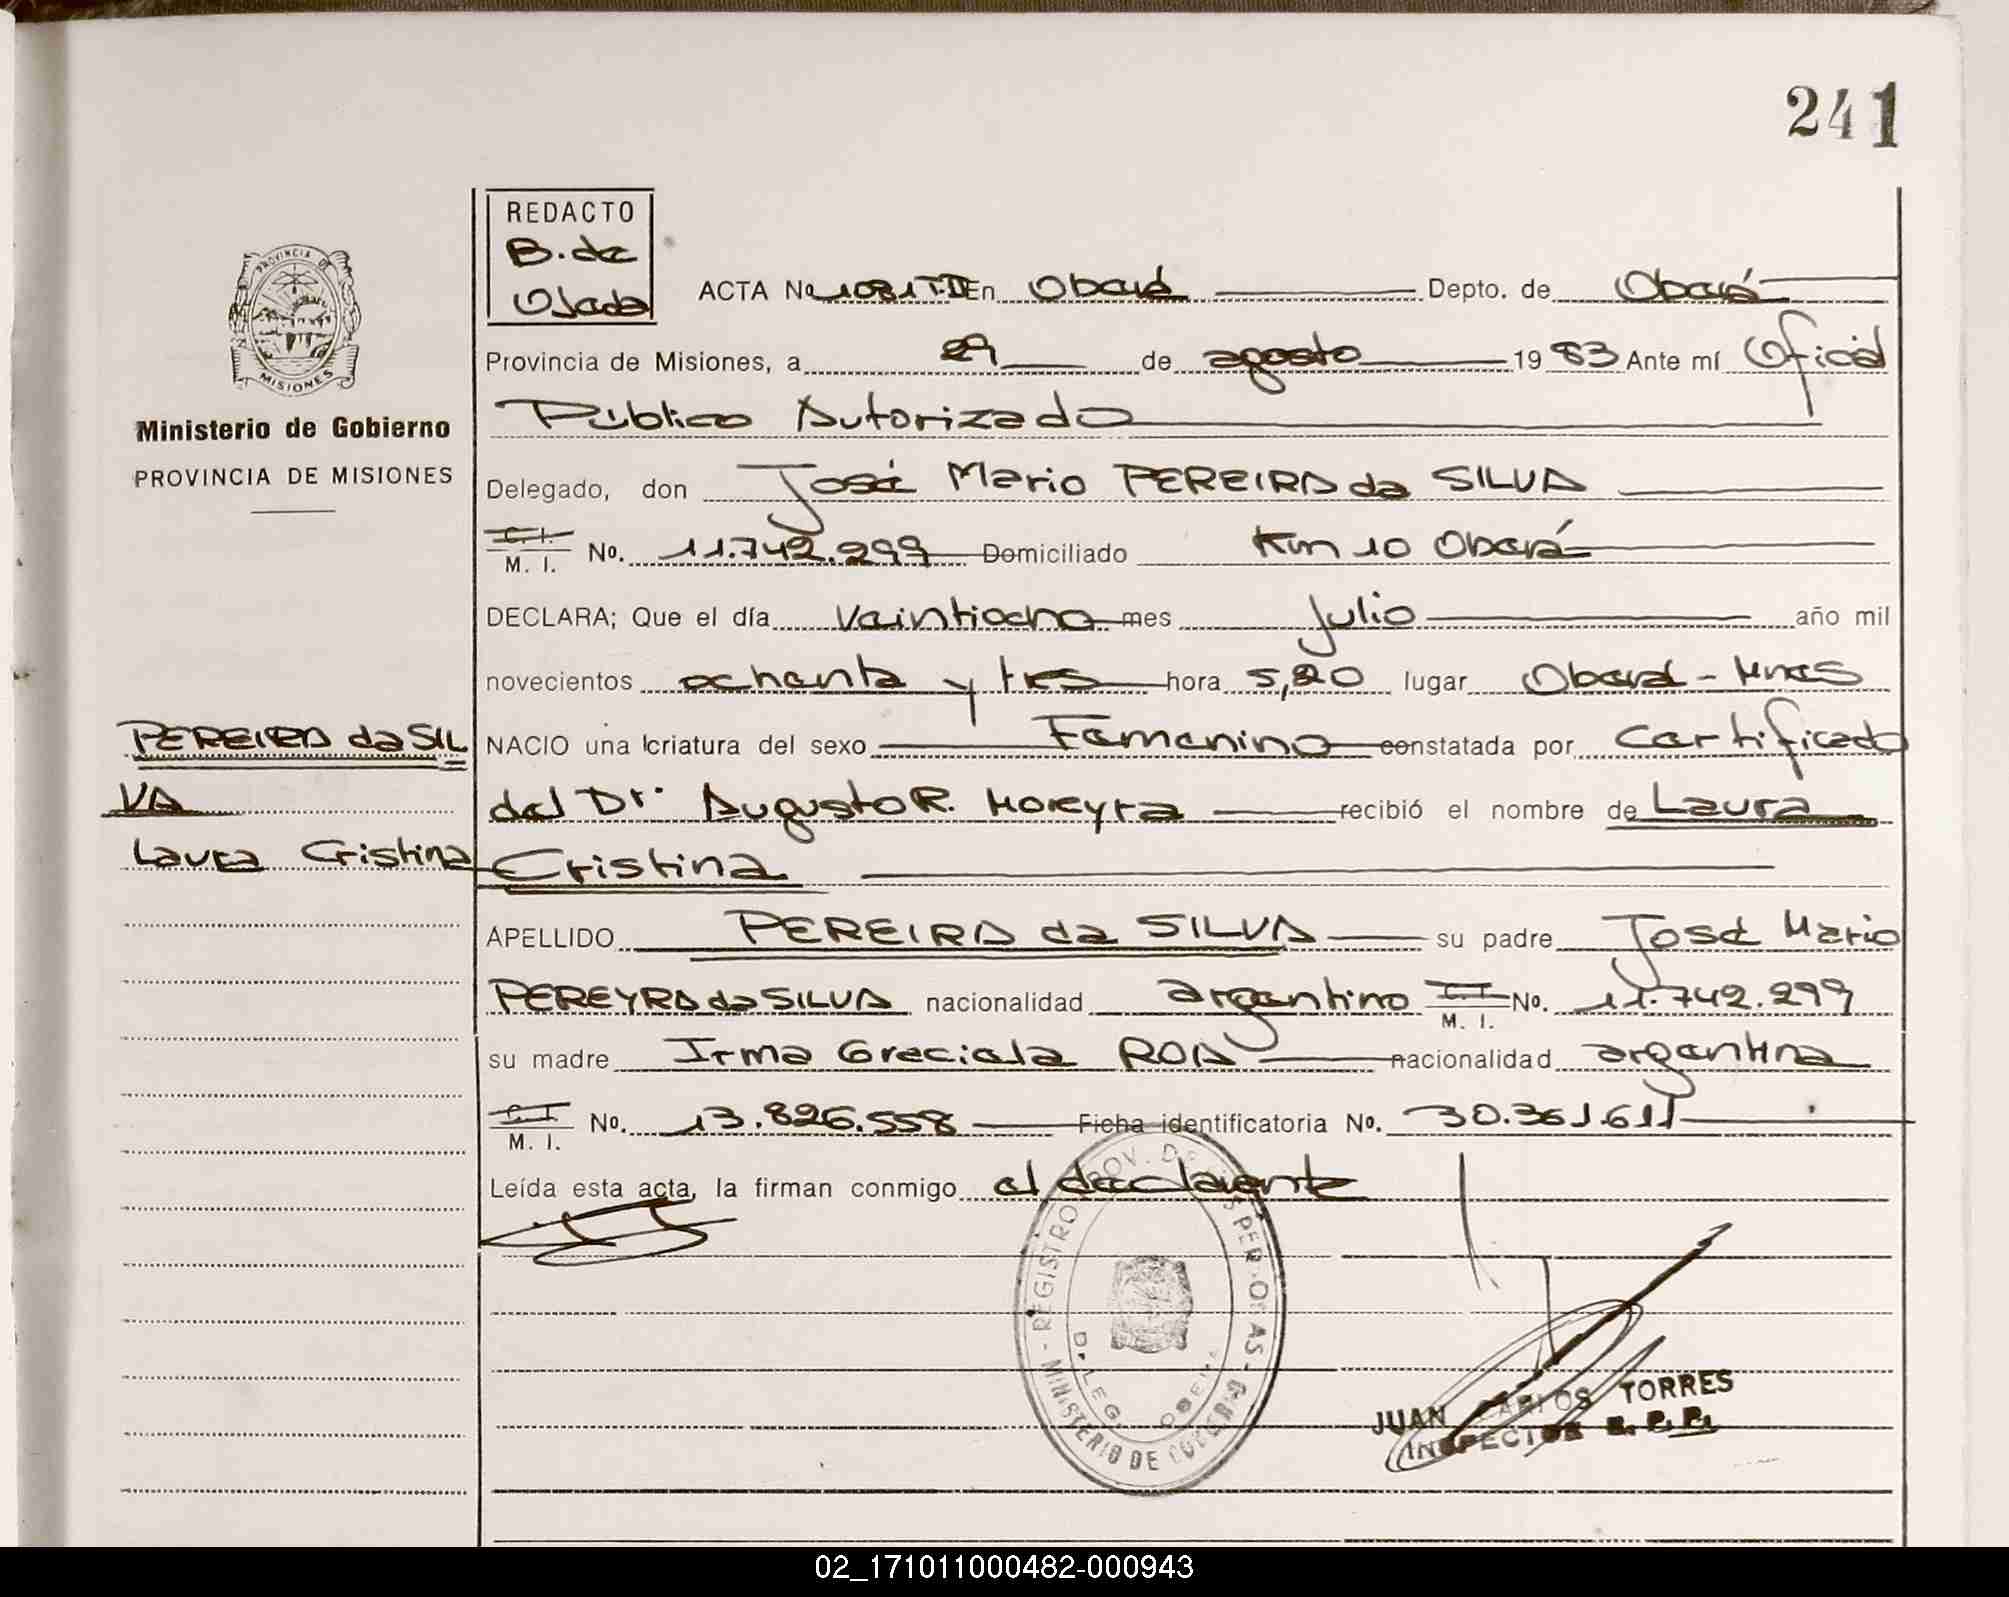 241
REDACTO
B. de
Ojeda
ACTA No 1081 T.II En Oberá Depto. de Oberá
PROVINCIA DE
MISIONES
Provincia de Misiones, a 29 de agosto 1983 Ante mí Oficial
Ministerio de Gobierno
Público Autorizado
PROVINCIA DE MISIONES
Delegado, don José Mario PEREIRA da SILVA
C. I.
M. I. No. 11.742.299 Domiciliado Km 10 Oberá
DECLARA; Que el día veintiocho mes julio año mil
novecientos ochenta y tres hora 5,20 lugar Oberá - Mnes
PEREIRA da SIL
NACIO una criatura del sexo Femenino constatada por certificado
VA
del Dr. Augusto R. Moreyra recibió el nombre de Laura
Laura Cristina
Cristina
APELLIDO PEREIRA da SILVA su padre José Mario
PEREYRA da SILVA nacionalidad argentino C. I. M. I. No. 11.742.299
su madre Irma Graciela ROA nacionalidad argentina
C. I.
M. I. No. 13.826.558 Ficha identificatoria No. 30.361.611
Leída esta acta, la firman conmigo el declarante
REGISTRO PROV. DE LAS PERSONAS - MINISTERIO DE GOBIERNO
DELEG. OBERA
JUAN CARLOS TORRES
INSPECTOR R. P. P.
02_171011000482-000943